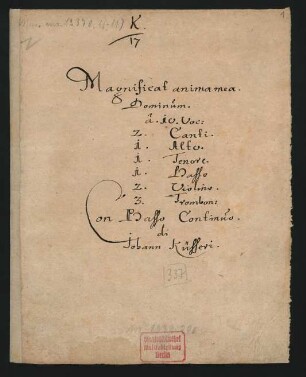 K.
17
Magnificat anima mea.
Dominum.
â. 10. Voc:
2. Canti.
1. Alto.
1. Tenore.
1. Basso
2. Violini.
3. Tromboni
Con Basso Continúo.
di
Johann Küsseri.